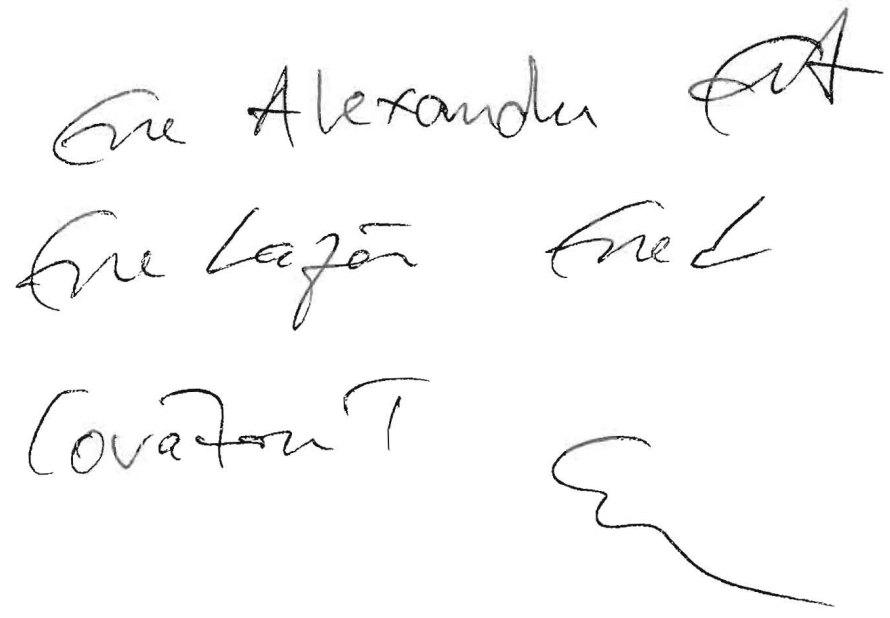 Ene Alexandru EA
Ene Lazăr Ene L
Covaton T